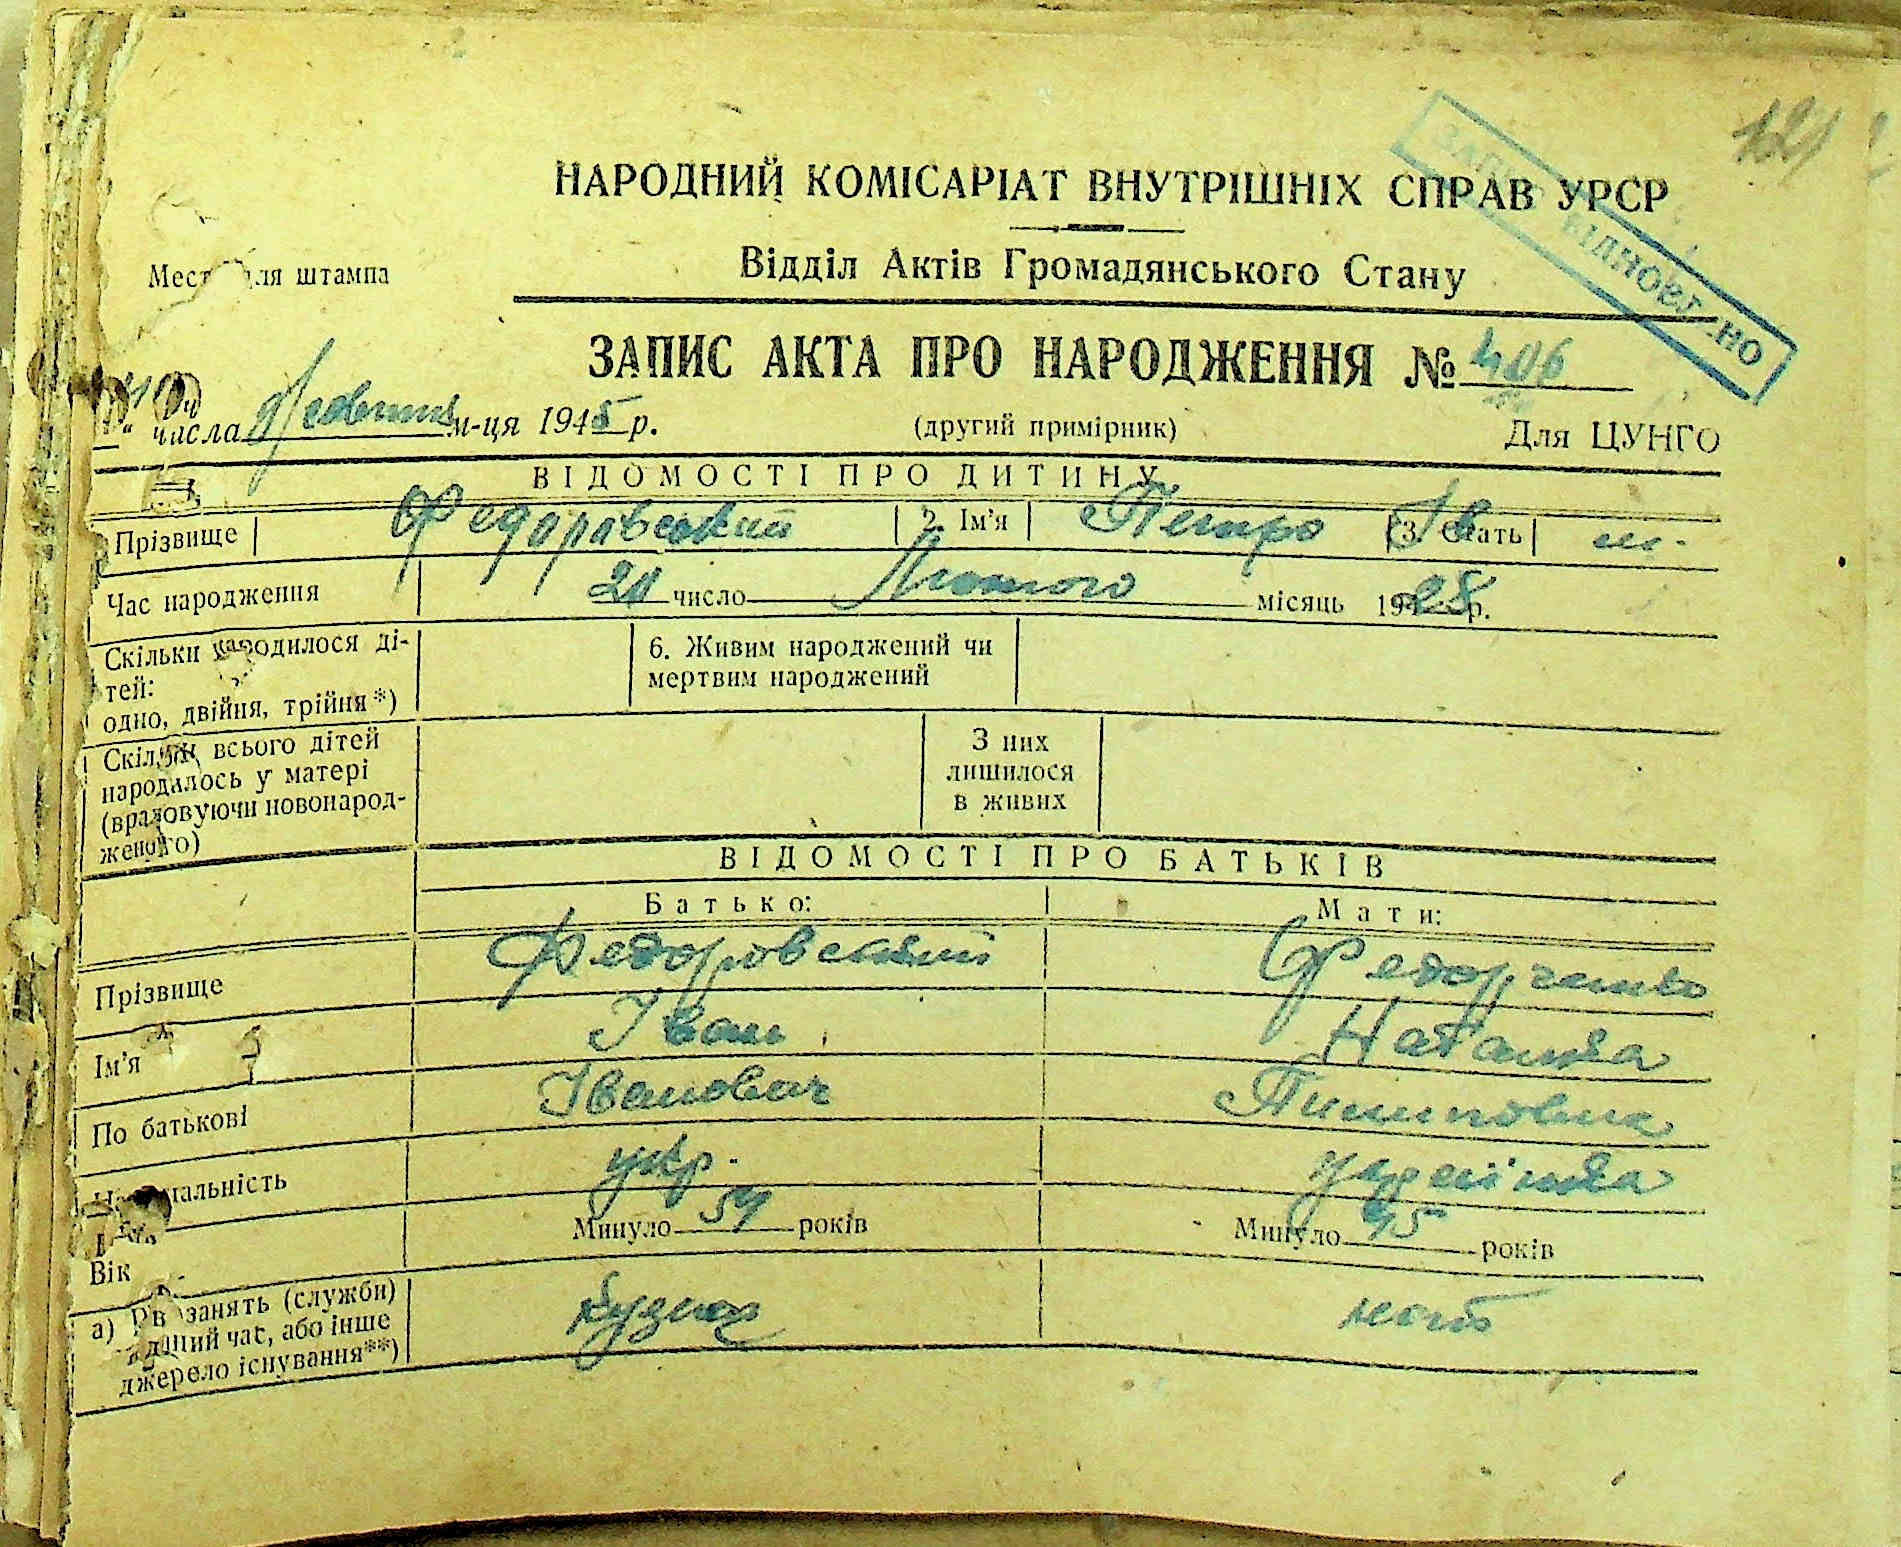 НАРОДНИЙ КОМІСАРІАТ ВНУТРІШНІХ СПРАВ УРСР
Відділ Актів Громадянського Стану
ВІДНОВЛЕНО
штампа
ЗАПИС АКТА ПРО НАРОДЖЕННЯ № 406
числа м-ця 1945 р.
(другий примірник)
Для ЦУНГО
ВІДОМОСТІ ПРО ДИТИНУ
Прізвище Федоровський 2. Ім'я Петро Ів 3. Стать
Час народження число Лютого місяць 1928 р.
Скільки народилося ді-
тей:
одно, двійня, трійня*)
6. Живим народжений чи
мертвим народжений
Скільки всього дітей
народилось у матері
(враховуючи новонарод-
женого)
З них
лишилося
в живих
ВІДОМОСТІ ПРО БАТЬКІВ
Батько: Мати:
Прізвище Федоровський Федорченко
Ім'я Іван Наталка
По батькові Іванович Пилиповна
Національність укр. українка
Вік Минуло 54 років Минуло 45 років
а) занять (служби)
даний час, або інше
джерело існування**)